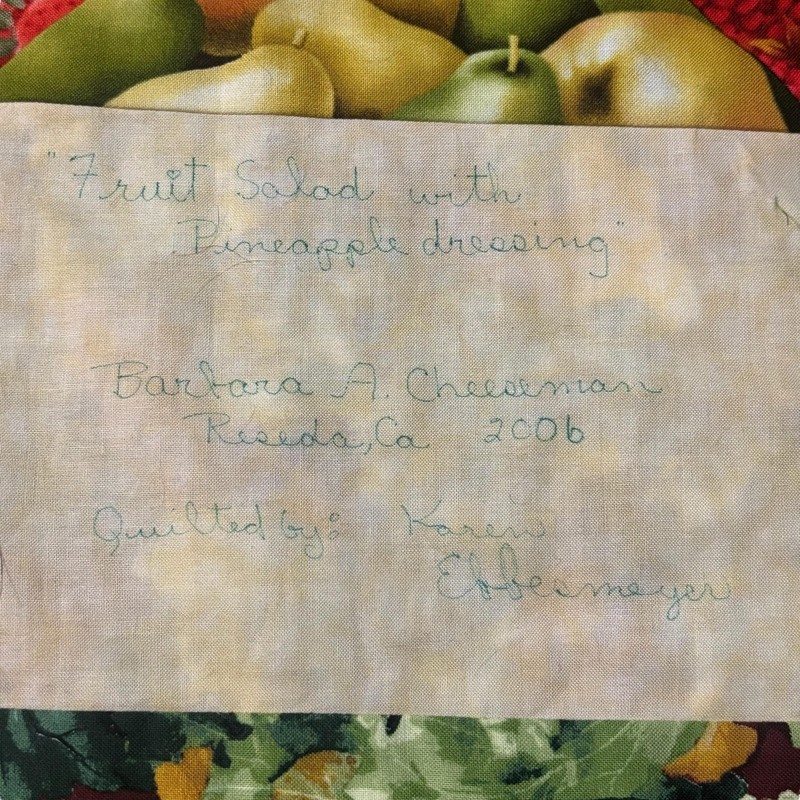 "Fruit Salad with
Pineapple dressing"
Barbara A. Cheeseman
Reseda, Ca 2006
Quilted by: Karen
Ebbesmeyer